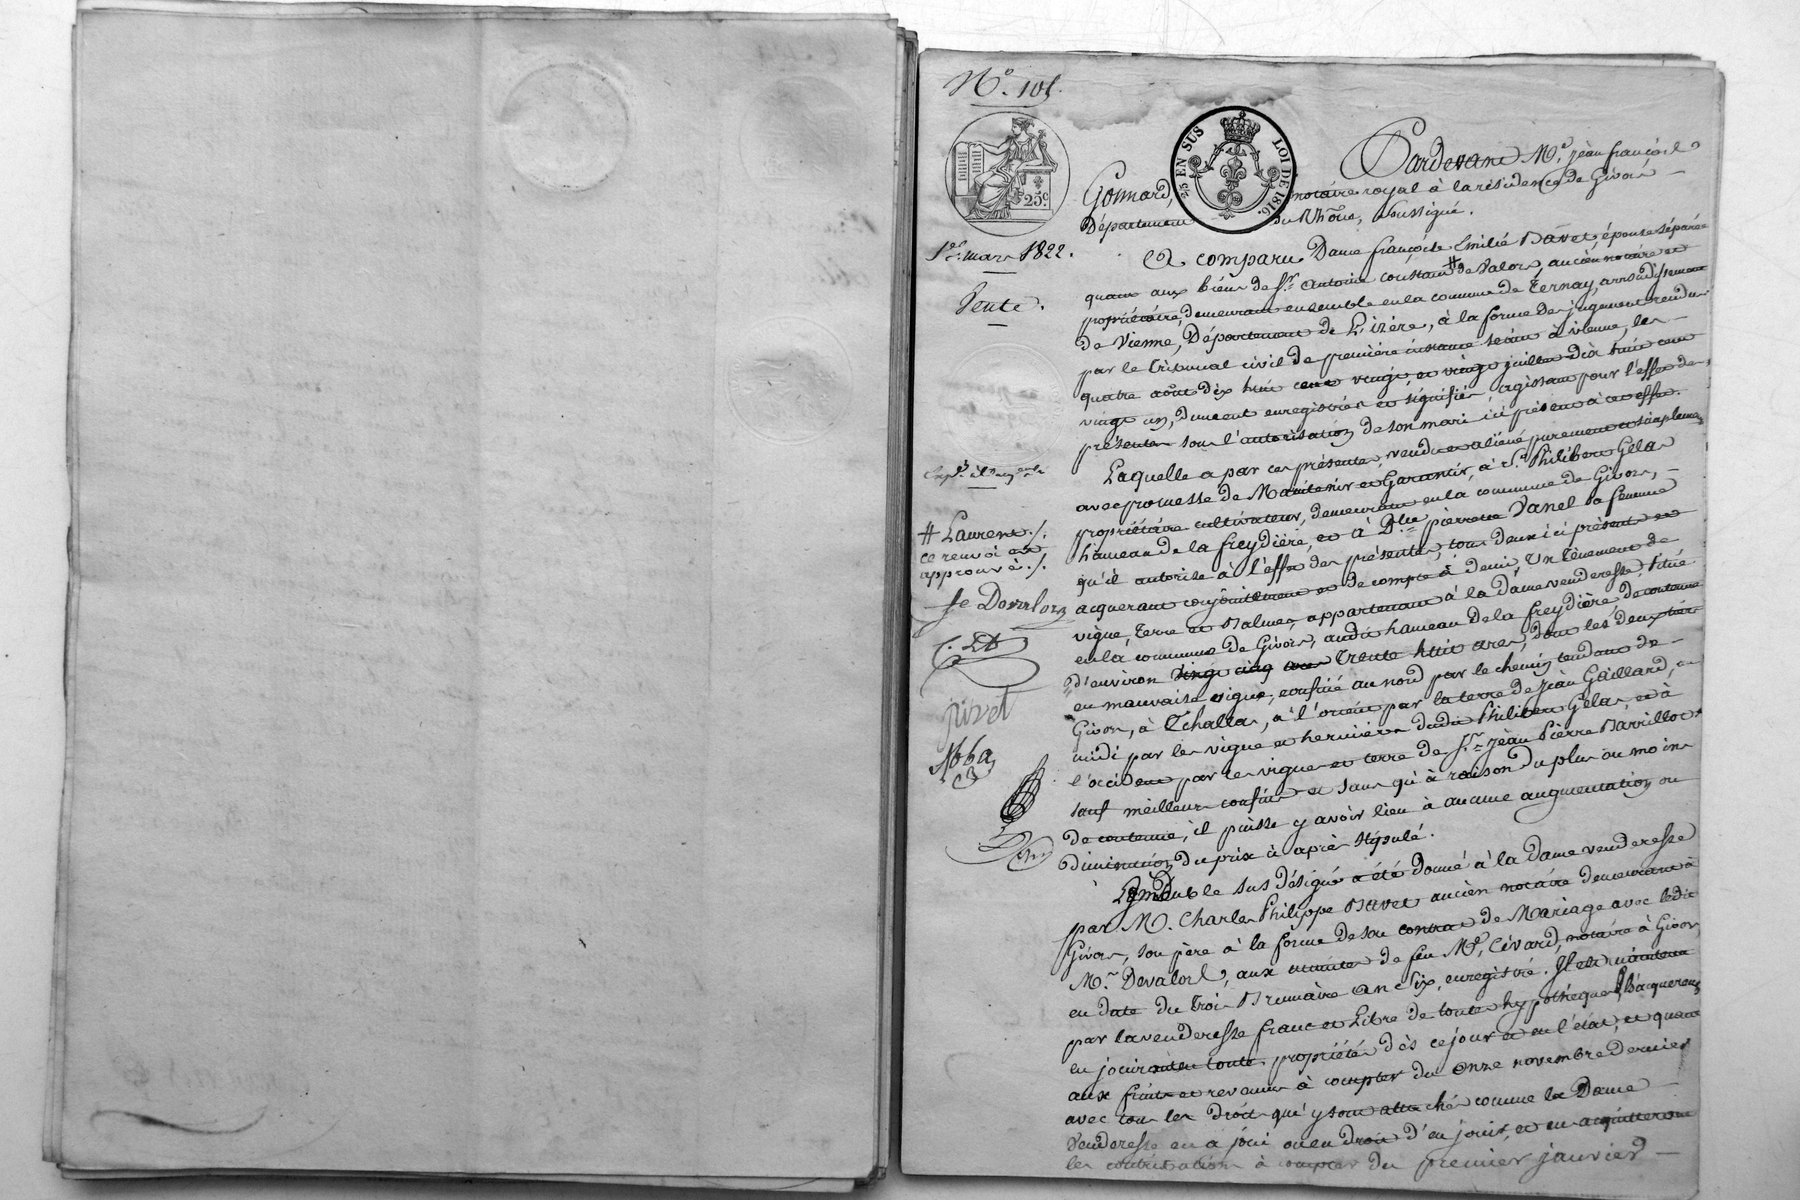 N.º 105.
25 EN SUS LOI DE 1816.
25c.
1er mars 1822.
Vente.
# Laurent ./.
ce renvoi est
approuvé ./.
Pardevant Me. jean françois
Gonnard, notaire royal à la résidence de Givors,
Département du Rhône, soussigné.
A comparu Dame françoise Emilie Bavet, épouse séparée
quant aux biens de Sr. Antoine Constant # de Valors, ancien notaire et
propriétaire, demeurant ensemble en la commune de Ternay, arrondissement
de Vienne, Département de L'isère, à la forme des jugements rendus
par le Tribunal civil de première instance séant à vienne, les
quatre août dix huit cent vingt, et vingt juillet dix huit cent
vingt un, duement enregistrés et signifiés, agissant pour l'effet des
présentes sous l'autorisation de son mari ici présent à cet effet.
Laquelle a par ces présentes, vendu et aliéné purement et simplement
avec promesse de Maintenir et Garantir, à Sr. Philibert Gélas
propriétaire cultivateur, demeurant en la commune de Givors,
hameau de la freydière, et à Dlle pierrette Vanel sa femme
qu'il autorise à l'effet des présentes, tous deux ici présent et
acquerant conjointement et de compte à demi, Un Tènement de
vigne, Terre et Balmes, appartenant à la Dame venderesse, situé
en la commune de Givors, audit hameau de la freydière, de contenue
d'environ vingt cinq ares Trente huit ares, dont les deux tiers
en mauvaise vigne, confiné au nord par le chemin tendant de
Givors, à Echallas, à l'orient par la terre de Jean Gaillard, au
midi par les vigne et hermières dudit Philibert Gélas, et à
l'occident par les vigne et terre de Sr. jean Pierre Barrillot
sauf meilleurs confins et sans qu'à raison du plus ou moins
de contenue, il puisse y avoir lieu à aucune augmentation ou
diminution du prix ci après stipulé.
L'immeuble sus désigné a été donné à la dame venderesse
par M. Charles Philippe Bavet ancien notaire demeurant à
Givors, son père à la forme de son contrat de Mariage avec ledit
Mr. Devalors, aux minutes de feu Me. Cévard, notaire à Givors,
en date du Trois Brumaire an Six, enregistré. Il est maintenu
par la venderesse franc et Libre de toute hypothèque, l'acquereur
en jouira en toute propriété dès ce jour et en l'état, et quant
aux fruits et revenus à compter du onze novembre dernier
avec tous les droits qui y sont attachés comme la Dame
Venderesse en a joui ou eu droit d'en jouir, et en acquitteront
les contributions à compter du premier janvier